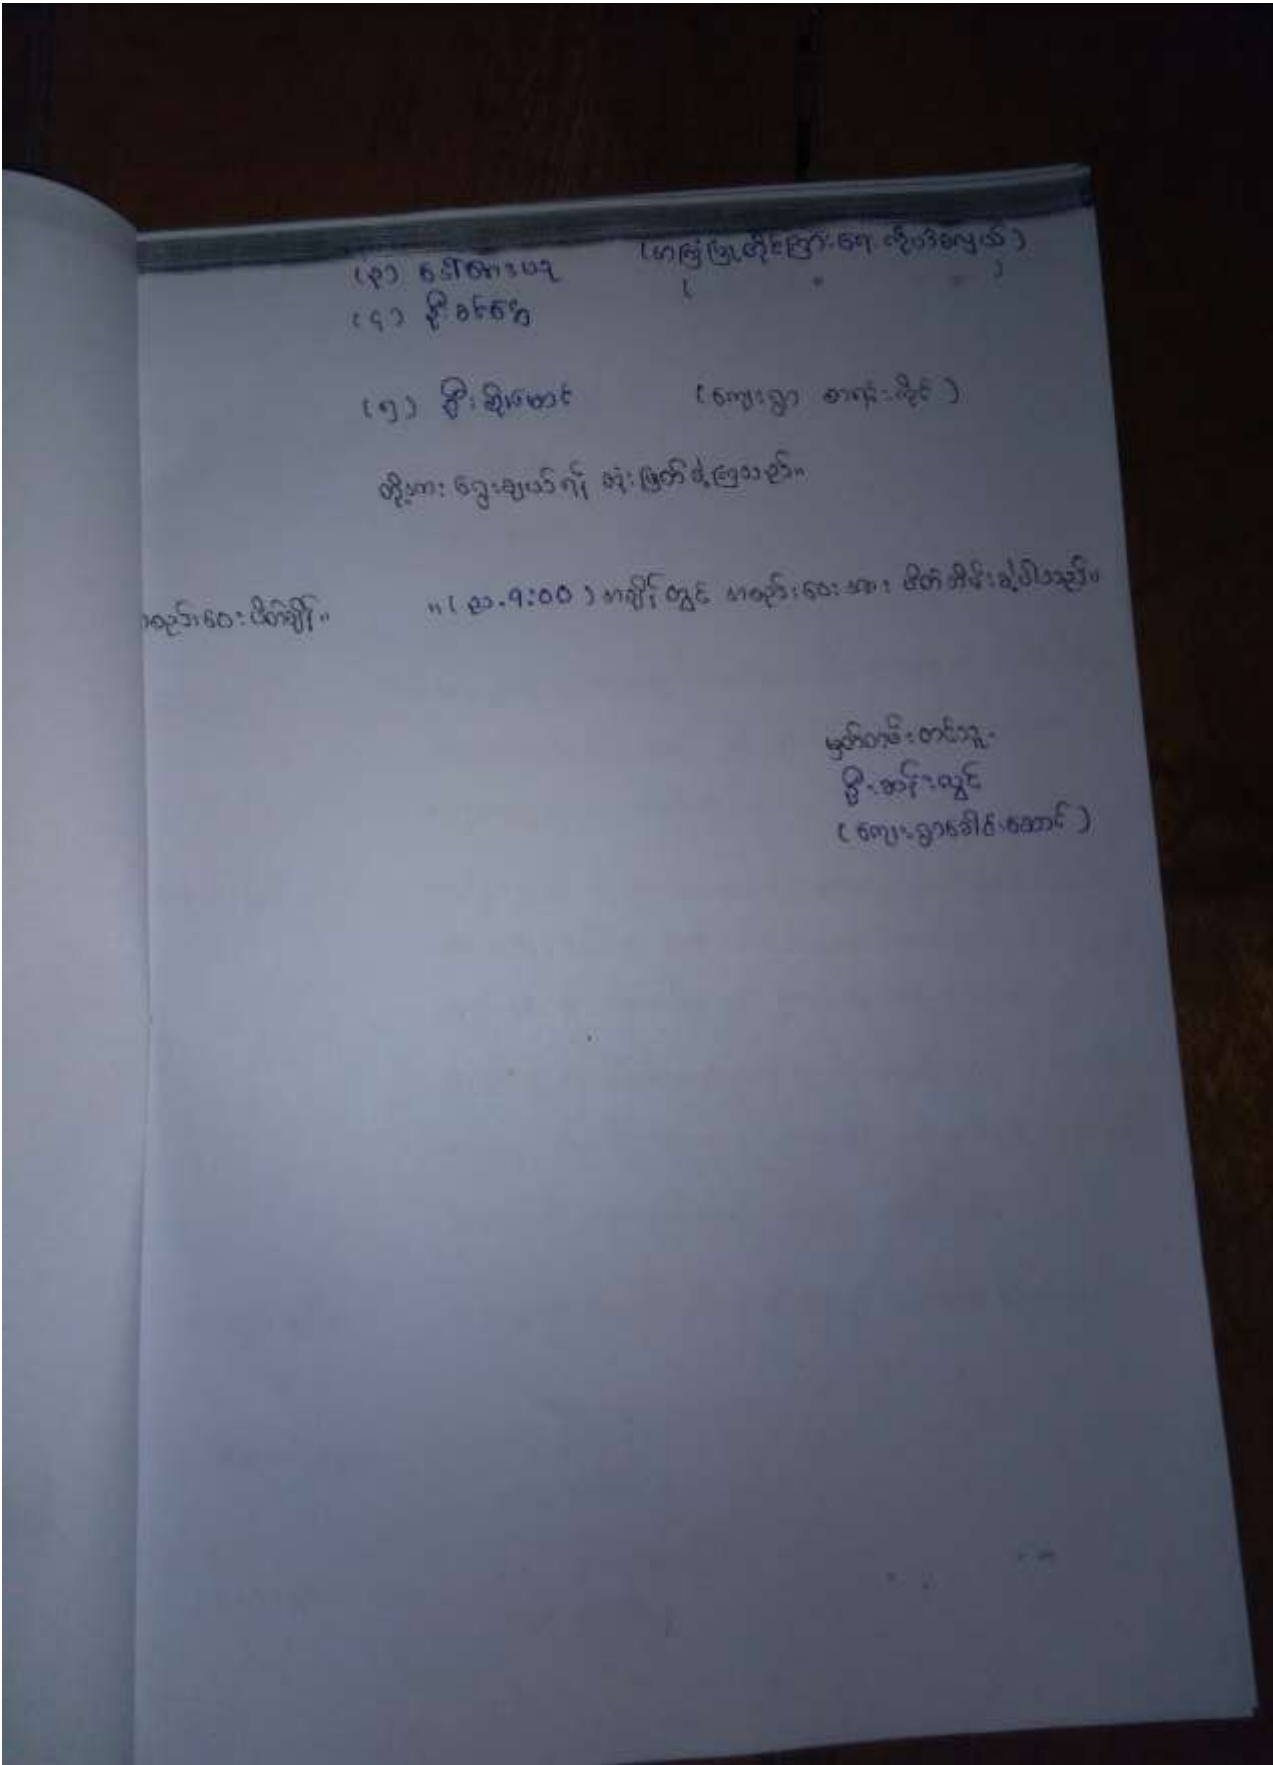 (၃) ဒေါ်အေးပု (အကြံပြုတိုင်ကြားရေး ကိုယ်စားလှယ်)
(၄) ဦးခင်ရွှေ ( " " )
(၅) ဦးစိုးမောင် (ကျေးရွာ စာရင်းကိုင်)
တို့အား ရွေးချယ်ရန် ဆုံးဖြတ်ခဲ့ကြသည်။
အစည်းဝေးပိတ်ချိန်။ ။ (ည.9:00) အချိန်တွင် အစည်းဝေးအား ပိတ်သိမ်းခဲ့ပါသည်။
မှတ်တမ်းတင်သူ
ဦးဆန်းလွင်
(ကျေးရွာခေါင်းဆောင်)